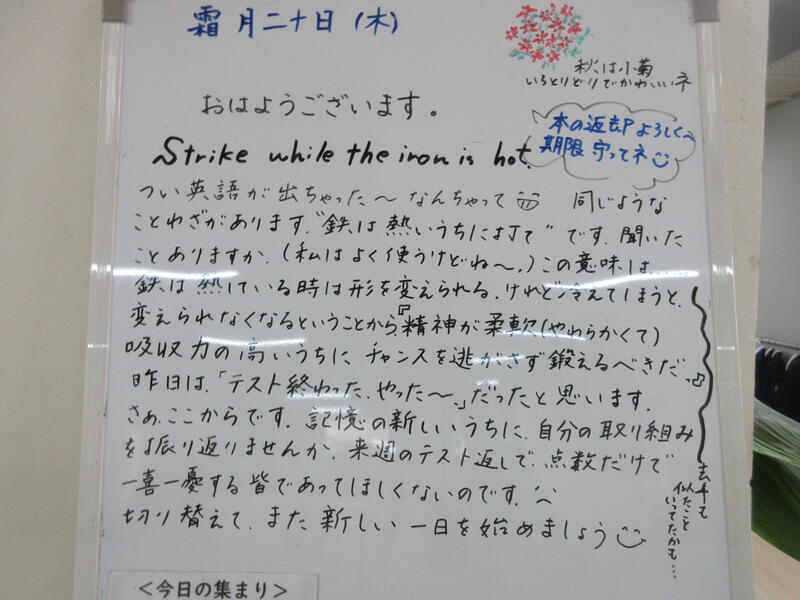 霜月二十日(木)
秋は小菊
いろとりどりでかわいいネ
おはようございます。
本の返却よろしく
期限守ってネ
Strike while the iron is hot.
つい英語が出ちゃった〜なんちゃって 同じような
ことわざがあります。"鉄は熱いうちに打て"です。聞いた
ことありますか。(私はよく使うけどね〜。)この意味は、
鉄は熱している時は形を変えられる。けれど冷えてしまうと、
変えられなくなるということから、『精神が柔軟(やわらかくて)
吸収力の高いうちに チャンスを逃がさず鍛えるべきだ。』
昨日は、「テスト終わった、やった〜。」だったと思います。
さぁ、ここからです。記憶の新しいうちに、自分の取り組み
を振り返りませんか。来週のテスト返しで、点数だけで
一喜一憂する皆であってほしくないのです。
切り替えて、また新しい一日を始めましょう
去年も
似たこと
いってたかも…
<今日の集まり>